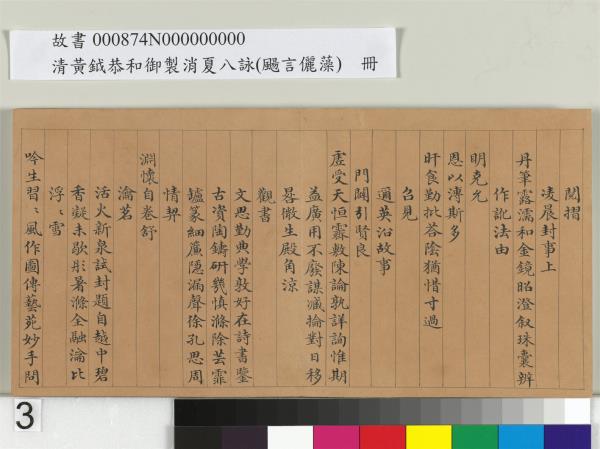 故書 000874N000000000
清黃鉞恭和御製消夏八詠(颺言儷藻) 冊
閱摺
凌晨封事上
丹筆露濡和金鏡昭澄叙珠囊辨
作訛法由
明克允
恩以溥斯多
旰食勤批荅陰猶惜寸過
召見
遹英沿故事
門闢引賢良
虛受天恒霽敷陳論孰詳詢惟期
益廣用不廢謀臧掄對日移
晷微生殿角涼
觀書
文思勤典學敦好在詩書鑒
古資陶鑄研幾慎滌除芸霏
罏篆細廉隱漏聲徐孔思周
情契
淵懷自卷舒
瀹茗
活火新泉試封題自越中碧
香凝未歇彤暑滌全融瀹比
浮〻雪
吟生習〻風作圖傳藝苑妙手問
3